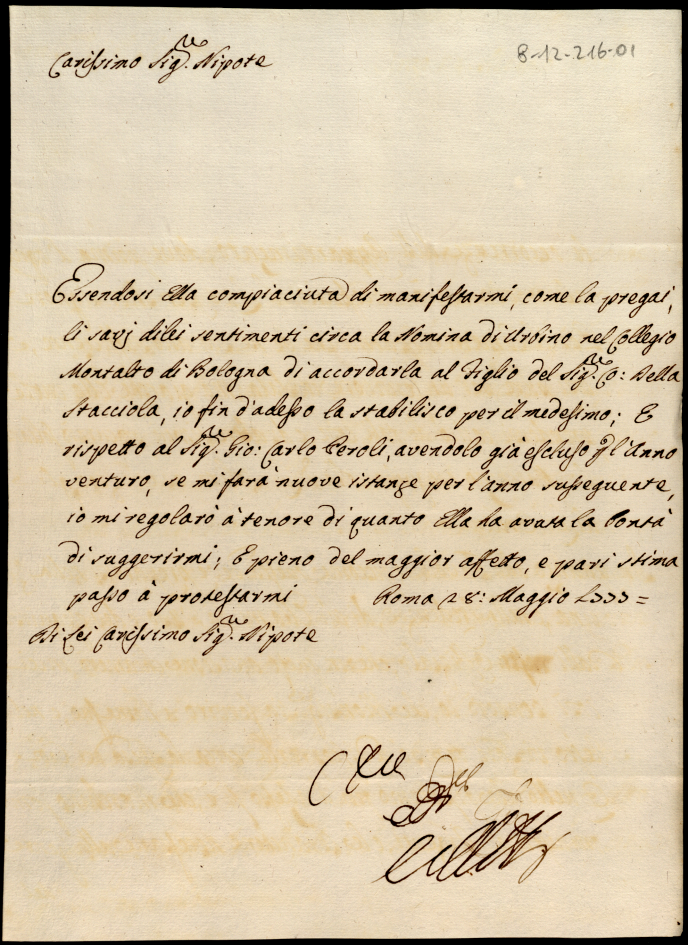 8-12-216-01
Carissimo Sig.re Nipote
Essendosi Ella compiaciuta di manifestarmi, come la pregai,
li savj di lei sentimenti circa la Nomina di Urbino nel Collegio
Montalto di Bologna di accordarla al Figlio del Sig.re Co: Della
Stacciola, io fin d'adesso la stabilisco per il medesimo; E
rispetto al Sig.re Gio: Carlo Peroli, avendolo già escluso p l'Anno
venturo, se mi farà nuove istanze per l'anno susseguente,
io mi regolarò à tenore di quanto Ella ha avuta la bontà
di suggerirmi; E pieno del maggior affetto, e pari stima
passo à protestarmi Roma 28: Maggio 1333=
Di Lei Carissimo Sig.re Nipote